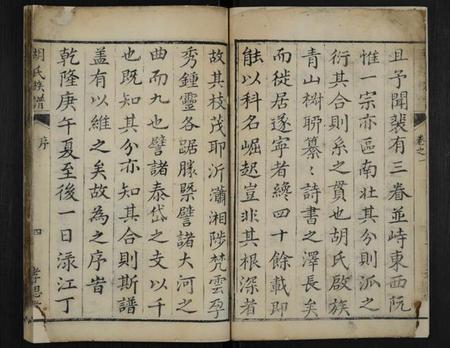 且予聞裴有三眷並峙東西阮
惟一宗亦區南北其分則派之
衍其合則系之貫也胡氏啟族
青山樹聊纂纂詩書之澤長矣
而徙居遂寧者纔四十餘載即
能以科名崛起豈非其根深者
故其枝茂耶沂瀟湘陟梵雲孕
秀鍾靈各踞勝槩譬諸大河之
曲而九也譬諸泰岱之支以千
也既知其分亦知其合則斯譜
蓋有以維之矣故為之序旹
乾隆庚午夏至後一日淥江丁
胡氏族譜
序
四
孝思